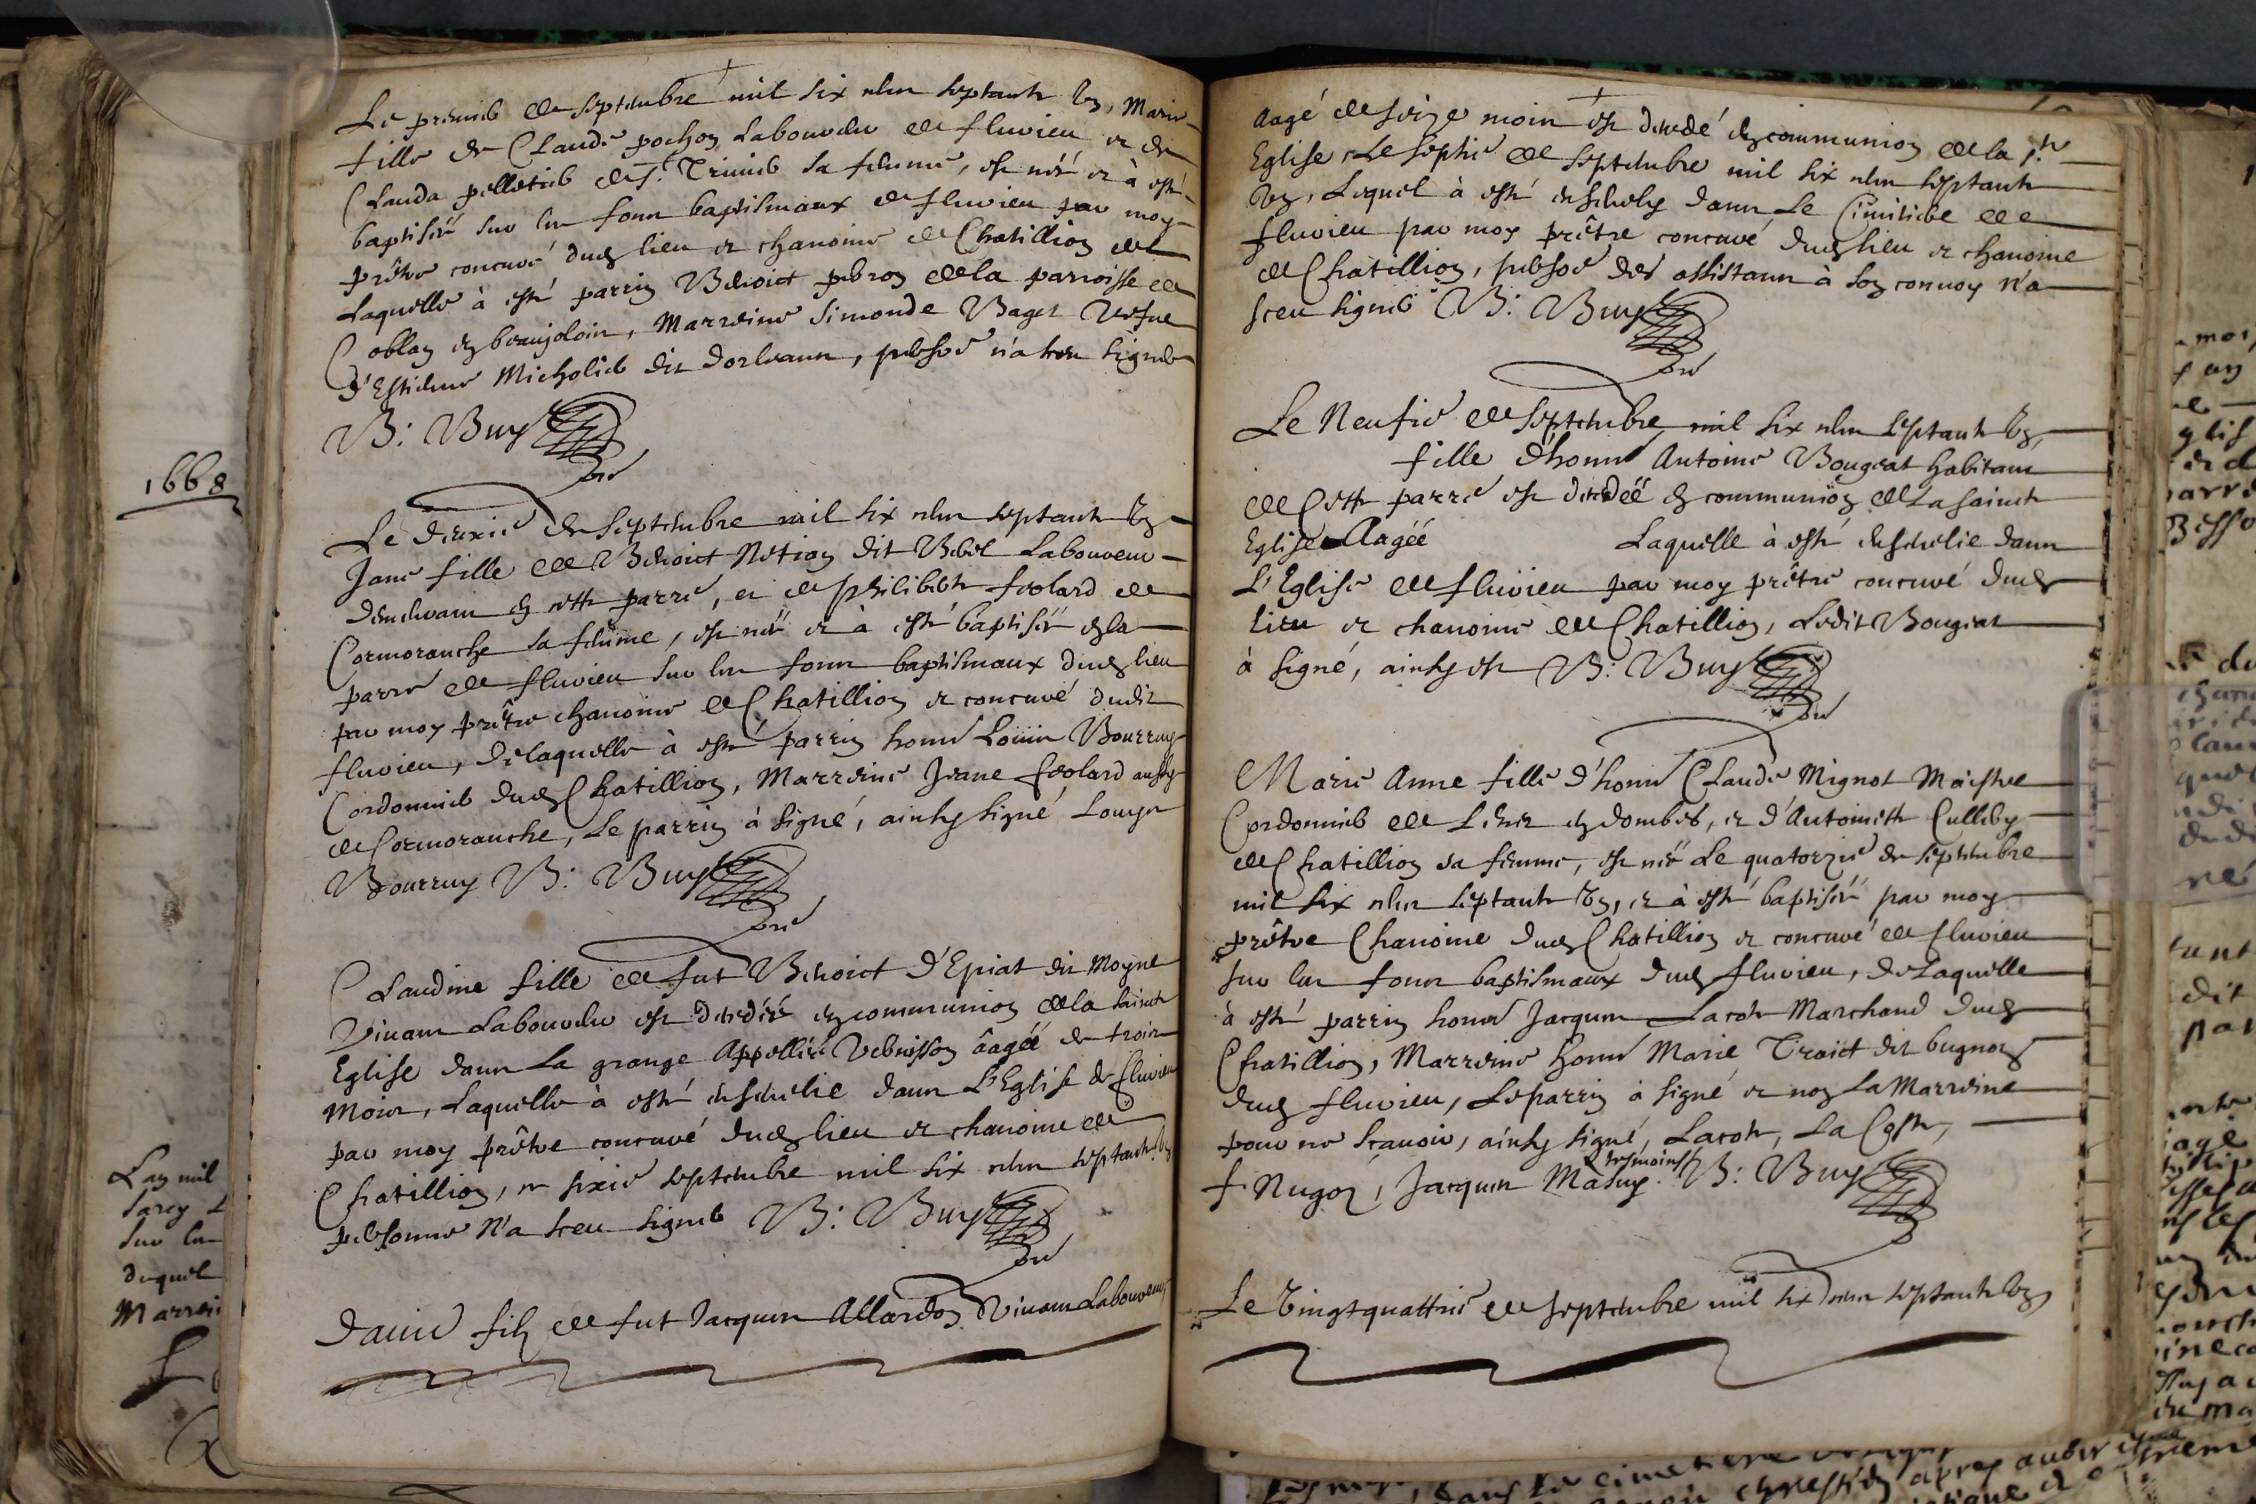 Le premie de septembre mil six cens septante Un, Marie
fille de Claude pochon, Laboureur de fluvieu et de
Clauda pelletier de St. Trivier sa femme, est née et à esté
baptisée sur les fonts baptismaux de fluvieu par moy
prêtre concuré dud lieu et chanoine de Chatillion de
Laquelle à esté parrin Benoict pebron de la parroisse de
Coblan en beaujolois, Marreine Simonde Baget Vefue
d'Estienne Micholier dit dorleans, persoe n'a sceu signer
B: Buy
Le deuxie de septembre mil six cens septante Un
Jane fille de Benoict Nétion dit Rebel Laboureur
demeurant en cette parre, et de philiberte feolard de
Cormoranche sa femme, est née et à esté baptisée en la
parre de fluvieu sur les fonts baptismaux dud lieu
par moy prêtre chanoine de Chatillion et concuré dudit
fluvieu, de laquelle à esté parrin honne Loüis Bourruy
Cordonnier dud Chatillion, Marreine Jeane feolard aussy
de Cormoranche, Le parrin à signé, ainsy signé Louys
Bourruy B: Buy
Claudine fille de fut Benoict d'Epiat dit Moyne
Vivant Laboureur est decedée en communion de la saincte
Eglise dans La grange Appellée Vernisson âagée de trois
Mois, Laquelle à esté ensevelie dans L'Eglise de fluvieu
par moy prêtre concuré dud lieu et chanoine de
Chatillion, ce sixie septembre mil six cens septante Un
personne n'a sceu signer B: Buy
David filz de fut Jacques Allardon Vivant Laboureur
aagé de seize mois est decedé en communion de la ste
Eglise, Le septie de septembre mil six cens septante
Un, Lequel à esté ensevely dans Le Cimitiere de
fluvieu par moy prêtre concuré dud lieu et chanoine
de Chatillion, persoe des assistans à son convoy n'a
sceu signer B: Buy
Le Neufie de septembre mil six cens septante Un,
fille d'honne Antoine Bougeat habitant
de Cette parre est decedée en communion de La saincte
Eglise Aagée Laquelle à esté ensevelie dans
L'Eglise de fluvieu par moy prêtre concuré dud
lieu et chanoine de Chatillion, Ledit Bougeat
à signé, ainsy est B: Buy
Marie Anne fille d'honne Claude Mignot Maistre
Cordonnier de Lenet en dombes, et d'Antoinette Cullery
de Chatillion sa femme, est née Le quatorzie de septembre
mil six cens septante Un, et à esté baptisée par moy
prêtre Chanoine dud Chatillion et concuré de fluvieu
sur les fonts baptismaux dud fluvieu, de Laquelle
à esté parrin honne Jacques Lacote Marchand dud
Chatillion, Marreine honne Marie Traict dit bugnon
dud fluvieu, Le parrin à signé et non La Marreine
pour ne scavoir, ainsy signé, Lacote, La Coste,
f. Nugoz, Jacques Masuy tesmoins B: Buy
Le Vingtquattrie de septembre mil six cens septante Un
1668
Lan mil
sarcy
sur les
duquel
Marrei